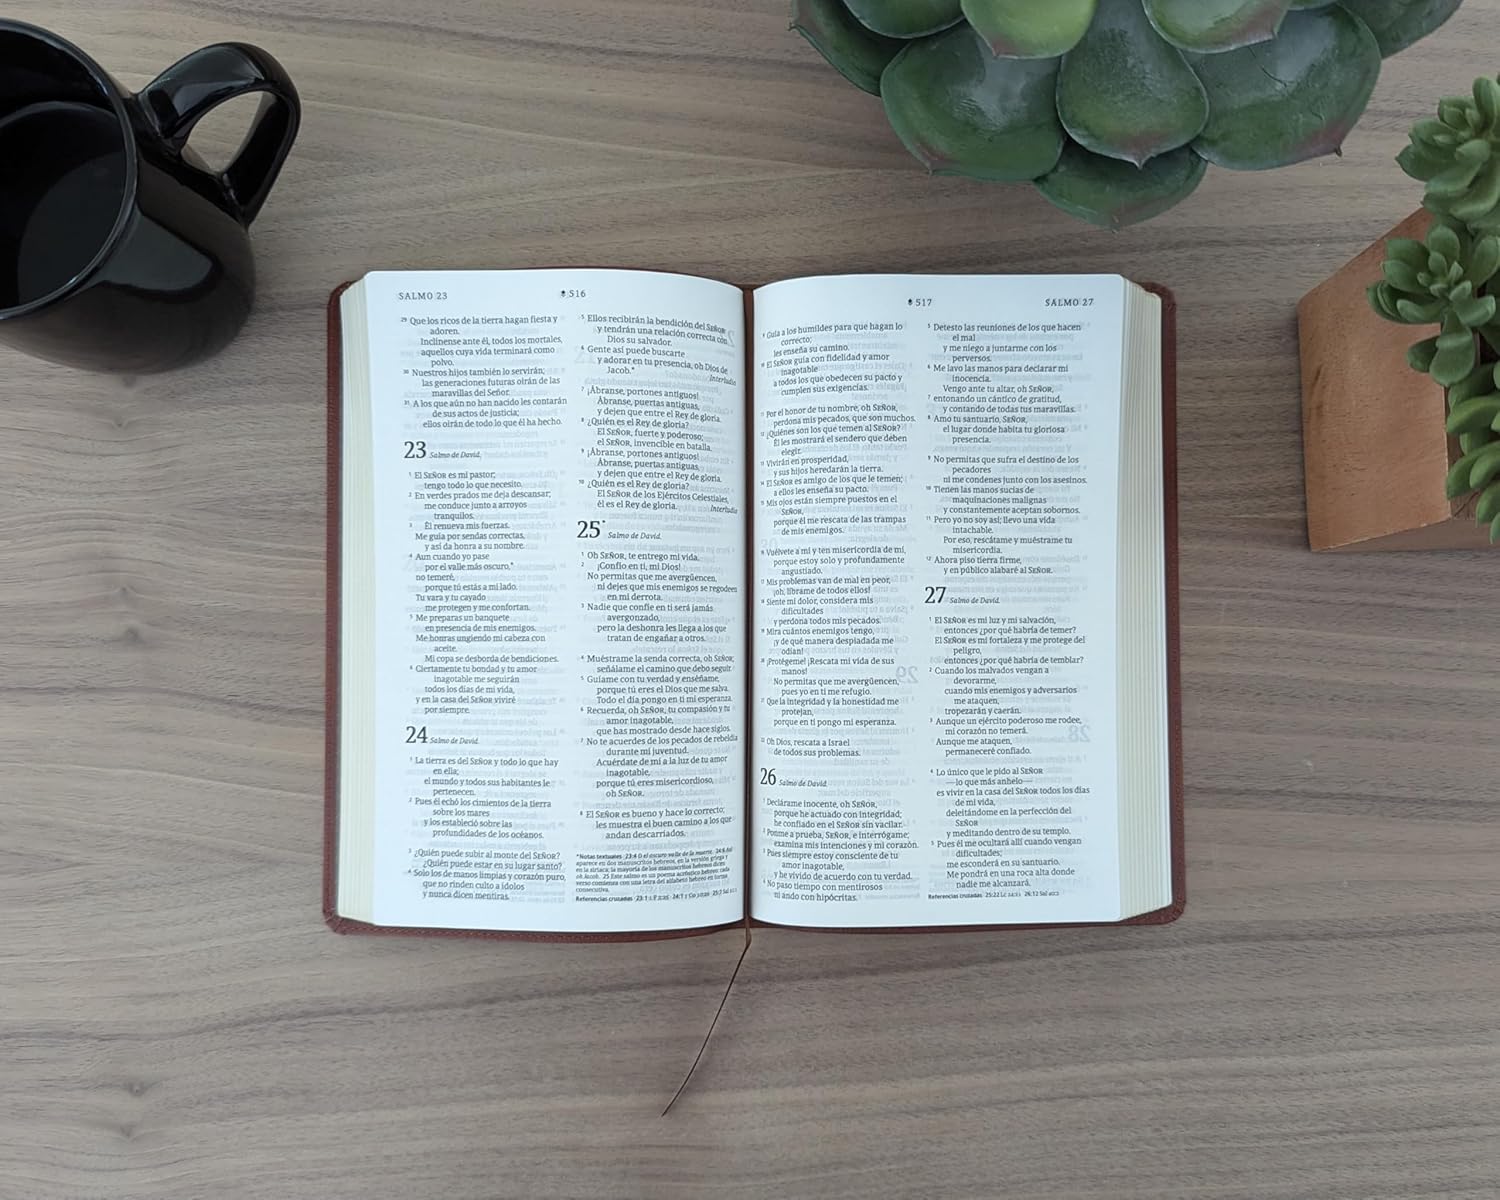 SALMO 23
516
29 Que los ricos de la tierra hagan fiesta y
adoren.
Inclínense ante él, todos los mortales,
aquellos cuya vida terminará como
polvo.
30 Nuestros hijos también lo servirán;
las generaciones futuras oirán de las
maravillas del Señor.
31 A los que aún no han nacido les contarán
de sus actos de justicia;
ellos oirán de todo lo que él ha hecho.
23 Salmo de David.
1 El SEÑOR es mi pastor;
tengo todo lo que necesito.
2 En verdes prados me deja descansar;
me conduce junto a arroyos
tranquilos.
3 Él renueva mis fuerzas.
Me guía por sendas correctas,
y así da honra a su nombre.
4 Aun cuando yo pase
por el valle más oscuro,*
no temeré,
porque tú estás a mi lado.
Tu vara y tu cayado
me protegen y me confortan.
5 Me preparas un banquete
en presencia de mis enemigos.
Me honras ungiendo mi cabeza con
aceite.
Mi copa se desborda de bendiciones.
6 Ciertamente tu bondad y tu amor
inagotable me seguirán
todos los días de mi vida,
y en la casa del SEÑOR viviré
por siempre.
24 Salmo de David.
1 La tierra es del SEÑOR y todo lo que hay
en ella;
el mundo y todos sus habitantes le
pertenecen.
2 Pues él echó los cimientos de la tierra
sobre los mares
y los estableció sobre las
profundidades de los océanos.
3 ¿Quién puede subir al monte del SEÑOR?
¿Quién puede estar en su lugar santo?
4 Solo los de manos limpias y corazón puro,
que no rinden culto a ídolos
y nunca dicen mentiras.
5 Ellos recibirán la bendición del SEÑOR
y tendrán una relación correcta con
Dios su salvador.
6 Gente así puede buscarte
y adorar en tu presencia, oh Dios de
Jacob.*
Interludio
7 ¡Ábranse, portones antiguos!
Ábranse, puertas antiguas,
y dejen que entre el Rey de gloria.
8 ¿Quién es el Rey de gloria?
El SEÑOR, fuerte y poderoso;
el SEÑOR, invencible en batalla.
9 ¡Ábranse, portones antiguos!
Ábranse, puertas antiguas,
y dejen que entre el Rey de gloria.
10 ¿Quién es el Rey de gloria?
El SEÑOR de los Ejércitos Celestiales,
él es el Rey de gloria. Interludio
25* Salmo de David.
1 Oh SEÑOR, te entrego mi vida.
2 ¡Confío en ti, mi Dios!
No permitas que me avergüencen,
ni dejes que mis enemigos se regodeen
en mi derrota.
3 Nadie que confíe en ti será jamás
avergonzado,
pero la deshonra les llega a los que
tratan de engañar a otros.
4 Muéstrame la senda correcta, oh SEÑOR;
señálame el camino que debo seguir.
5 Guíame con tu verdad y enséñame,
porque tú eres el Dios que me salva.
Todo el día pongo en ti mi esperanza.
6 Recuerda, oh SEÑOR, tu compasión y tu
amor inagotable,
que has mostrado desde hace siglos.
7 No te acuerdes de los pecados de rebeldía
durante mi juventud.
Acuérdate de mí a la luz de tu amor
inagotable,
porque tú eres misericordioso,
oh SEÑOR.
8 El SEÑOR es bueno y hace lo correcto;
les muestra el buen camino a los que
andan descarriados.
*Notas textuales 23:4 O el oscuro valle de la muerte. 24:6 Así
aparece en dos manuscritos hebreos, en la versión griega y
en la siríaca; la mayoría de los manuscritos hebreos dicen
oh Jacob. 25 Este salmo es un poema acróstico hebreo; cada
verso comienza con una letra del alfabeto hebreo en forma
consecutiva.
Referencias cruzadas 23:1
517
SALMO 27
9 Guía a los humildes para que hagan lo
correcto;
les enseña su camino.
10 El SEÑOR guía con fidelidad y amor
inagotable
a todos los que obedecen su pacto y
cumplen sus exigencias.
11 Por el honor de tu nombre, oh SEÑOR,
perdona mis pecados, que son muchos.
12 ¿Quiénes son los que temen al SEÑOR?
Él les mostrará el sendero que deben
elegir.
13 Vivirán en prosperidad,
y sus hijos heredarán la tierra.
14 El SEÑOR es amigo de los que le temen;
a ellos les enseña su pacto.
15 Mis ojos están siempre puestos en el
SEÑOR,
porque él me rescata de las trampas
de mis enemigos.
16 Vuélvete a mí y ten misericordia de mí,
porque estoy solo y profundamente
angustiado.
17 Mis problemas van de mal en peor,
¡oh, líbrame de todos ellos!
18 Siente mi dolor, considera mis
dificultades
y perdona todos mis pecados.
19 Mira cuántos enemigos tengo,
¡y de qué manera despiadada me
odian!
20 ¡Protégeme! ¡Rescata mi vida de sus
manos!
No permitas que me avergüencen,
pues yo en ti me refugio.
21 Que la integridad y la honestidad me
protejan,
porque en ti pongo mi esperanza.
22 Oh Dios, rescata a Israel
de todos sus problemas.
26 Salmo de David.
1 Declárame inocente, oh SEÑOR,
porque he actuado con integridad;
he confiado en el SEÑOR sin vacilar.
2 Ponme a prueba, SEÑOR, e interrógame;
examina mis intenciones y mi corazón.
3 Pues siempre estoy consciente de tu
amor inagotable,
y he vivido de acuerdo con tu verdad.
4 No paso tiempo con mentirosos
ni ando con hipócritas.
5 Detesto las reuniones de los que hacen
el mal
y me niego a juntarme con los
perversos.
6 Me lavo las manos para declarar mi
inocencia.
Vengo ante tu altar, oh SEÑOR,
7 entonando un cántico de gratitud,
y contando de todas tus maravillas.
8 Amo tu santuario, SEÑOR,
el lugar donde habita tu gloriosa
presencia.
9 No permitas que sufra el destino de los
pecadores
ni me condenes junto con los asesinos.
10 Tienen las manos sucias de
maquinaciones malignas
y constantemente aceptan sobornos.
11 Pero yo no soy así; llevo una vida
intachable.
Por eso, rescátame y muéstrame tu
misericordia.
12 Ahora piso tierra firme,
y en público alabaré al SEÑOR.
27 Salmo de David.
1 El SEÑOR es mi luz y mi salvación,
entonces ¿por qué habría de temer?
El SEÑOR es mi fortaleza y me protege del
peligro,
entonces ¿por qué habría de temblar?
2 Cuando los malvados vengan a
devorarme,
cuando mis enemigos y adversarios
me ataquen,
tropezarán y caerán.
3 Aunque un ejército poderoso me rodee,
mi corazón no temerá.
Aunque me ataquen,
permaneceré confiado.
4 Lo único que le pido al SEÑOR
—lo que más anhelo—
es vivir en la casa del SEÑOR todos los días
de mi vida,
deleitándome en la perfección del
SEÑOR
y meditando dentro de su templo.
5 Pues él me ocultará allí cuando vengan
dificultades;
me esconderá en su santuario.
Me pondrá en una roca alta donde
nadie me alcanzará.
Referencias cruzadas 25:22 26:12